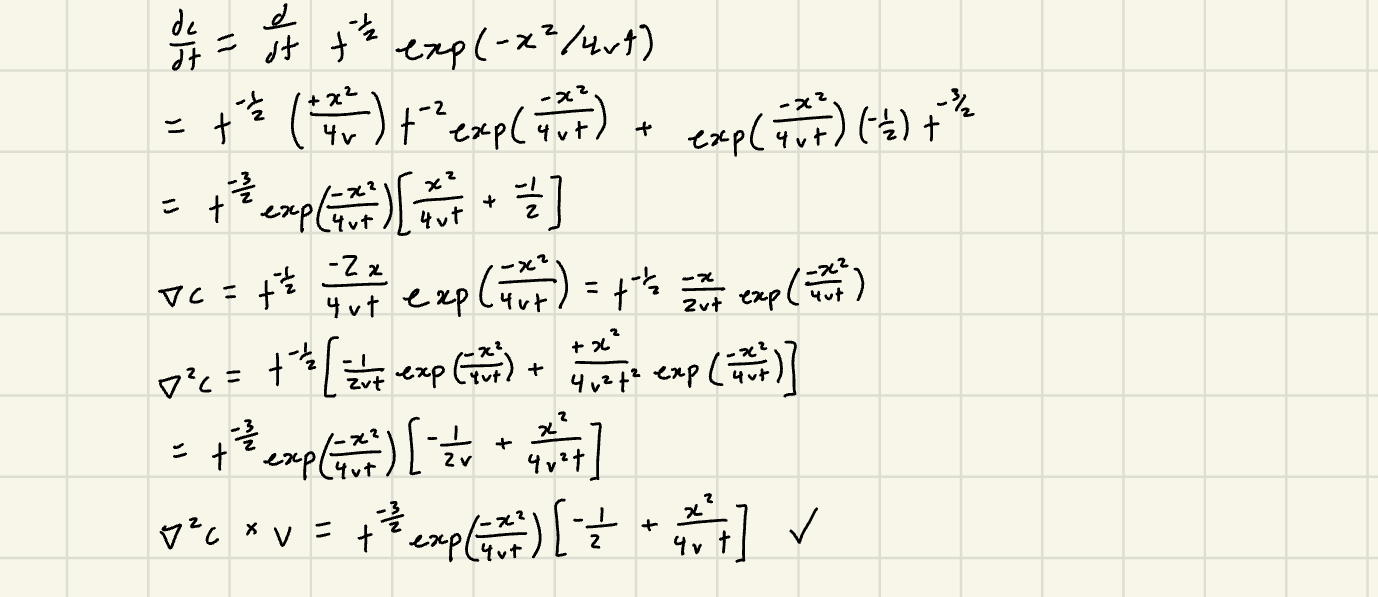 dc/dt = d/dt t^{-1/2} exp(-x²/4vt)
= t^{-1/2} (+x²/4v) t^{-2} exp(-x²/4vt) + exp(-x²/4vt) (-1/2) t^{-3/2}
= t^{-3/2} exp(-x²/4vt) [x²/4vt + -1/2]
∇c = t^{-1/2} -2x/4vt exp(-x²/4vt) = t^{-1/2} -x/2vt exp(-x²/4vt)
∇²c = t^{-1/2} [-1/2vt exp(-x²/4vt) + +x²/4v²t² exp(-x²/4vt)]
= t^{-3/2} exp(-x²/4vt) [-1/2v + x²/4v²t]
∇²c × v = t^{-3/2} exp(-x²/4vt) [-1/2 + x²/4v t] ✓